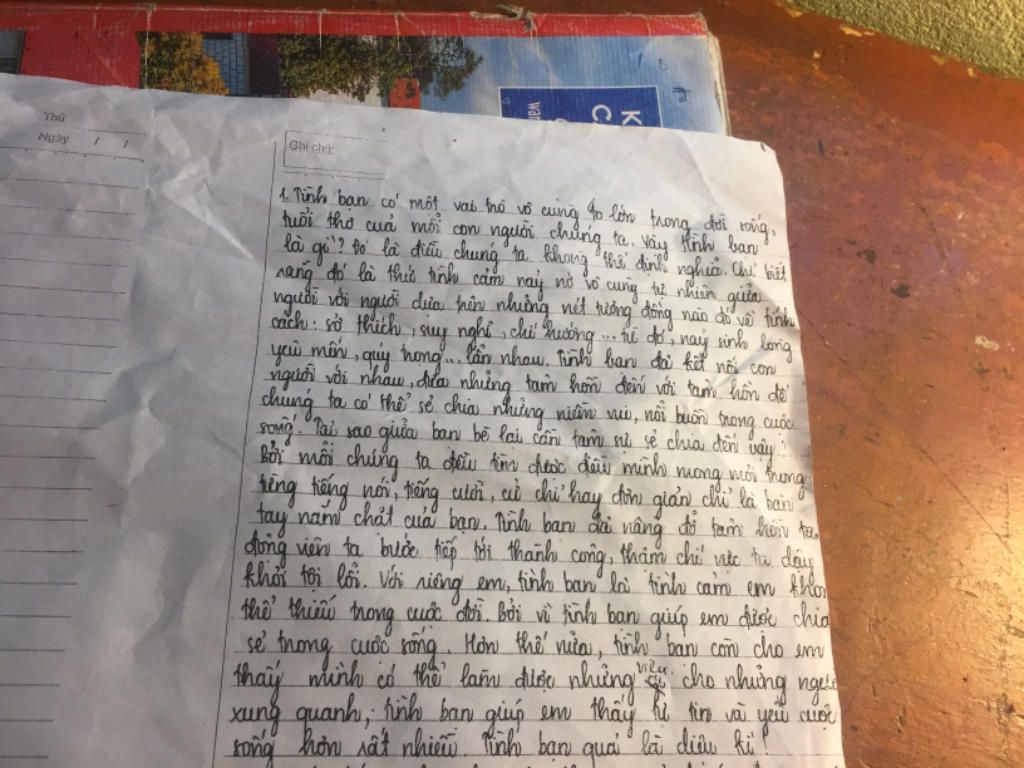 Thứ
Ngày / /
Ghi chú:
K
C
wan
1. Tình bạn có một vai trò vô cùng to lớn trong đời sống,
tuổi thơ của mỗi con người chúng ta. Vậy tình bạn
là gì? Đó là điều chúng ta không thể định nghĩa. Chỉ biết
rằng đó là thứ tình cảm nảy nở vô cùng tự nhiên giữa
người với người dựa trên những nét tương đồng nào đó về tính
cách: sở thích, suy nghĩ, chí hướng... từ đó, nảy sinh lòng
yêu mến, quý trọng... lẫn nhau. Tình bạn đã kết nối con
người với nhau, đưa những tâm hồn đến với tâm hồn để
chúng ta có thể sẻ chia những niềm vui, nỗi buồn trong cuộc
sống. Tại sao giữa bạn bè lại cần tâm sự sẻ chia đến vậy?
Bởi mỗi chúng ta đều tìm được điều mình mong mỏi trong
từng tiếng nói, tiếng cười, cử chỉ hay đơn giản chỉ là bàn
tay nắm chặt của bạn. Tình bạn đã nâng đỡ tâm hồn ta,
động viên ta bước tiếp tới thành công, thậm chí vực ta dậy
khỏi tội lỗi. Với riêng em, tình bạn là tình cảm em
thể thiếu trong cuộc đời. Bởi vì tình bạn giúp em được chia
sẻ trong cuộc sống. Hơn thế nữa, tình bạn còn cho em
thấy mình có thể làm được những việc cho những người
xung quanh, tình bạn giúp em thấy tự tin và yêu cuộc
sống hơn rất nhiều. Tình bạn quả là diệu kì!